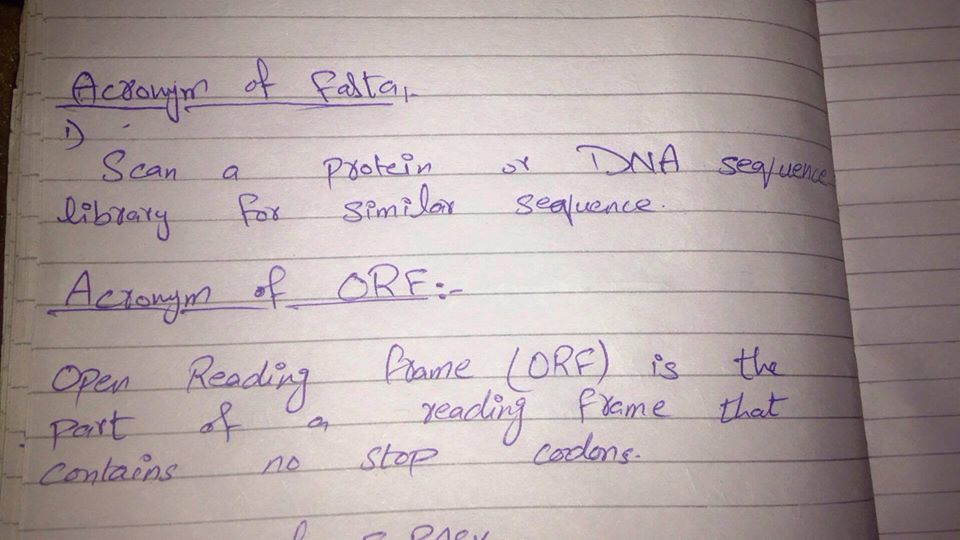 Acronym of Fasta:-
1)
Scan a protein or DNA sequence
library for similar sequence.
Acronym of ORF:-
Open Reading frame (ORF) is the
part of a reading frame that
contains no stop codons.